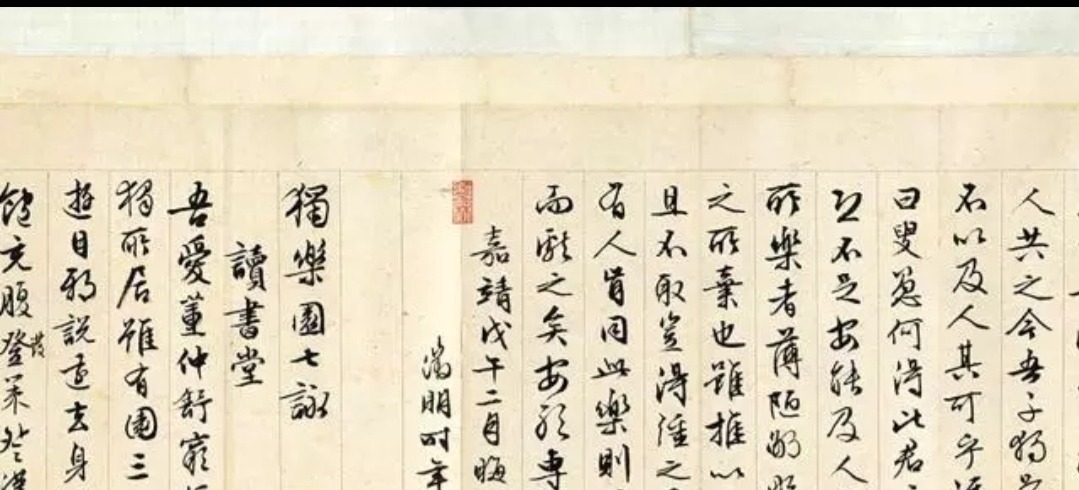 人共之今吾子獨
不以及人其可乎
曰叟愚何得比君
己不足安能及人
所樂者薄陋鄙
之所棄也雖推以
且不取豈得強之
有人肯同此樂則
而獻之矣安敢專
嘉靖戊午二月晦
徵明時年
獨樂園七詠
讀書堂
吾愛董仲舒窮
獨所居雖有園三
遊目邪說遠去身
飽充腹發策登漢